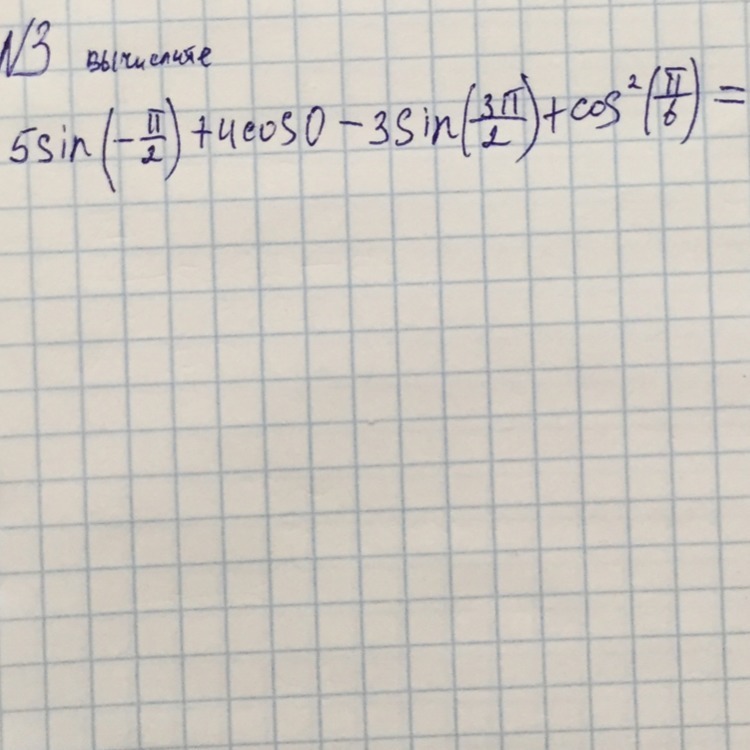 №3 вычислите
5sin(-π/2)+4cos0-3sin(3π/2)+cos²(π/6)=